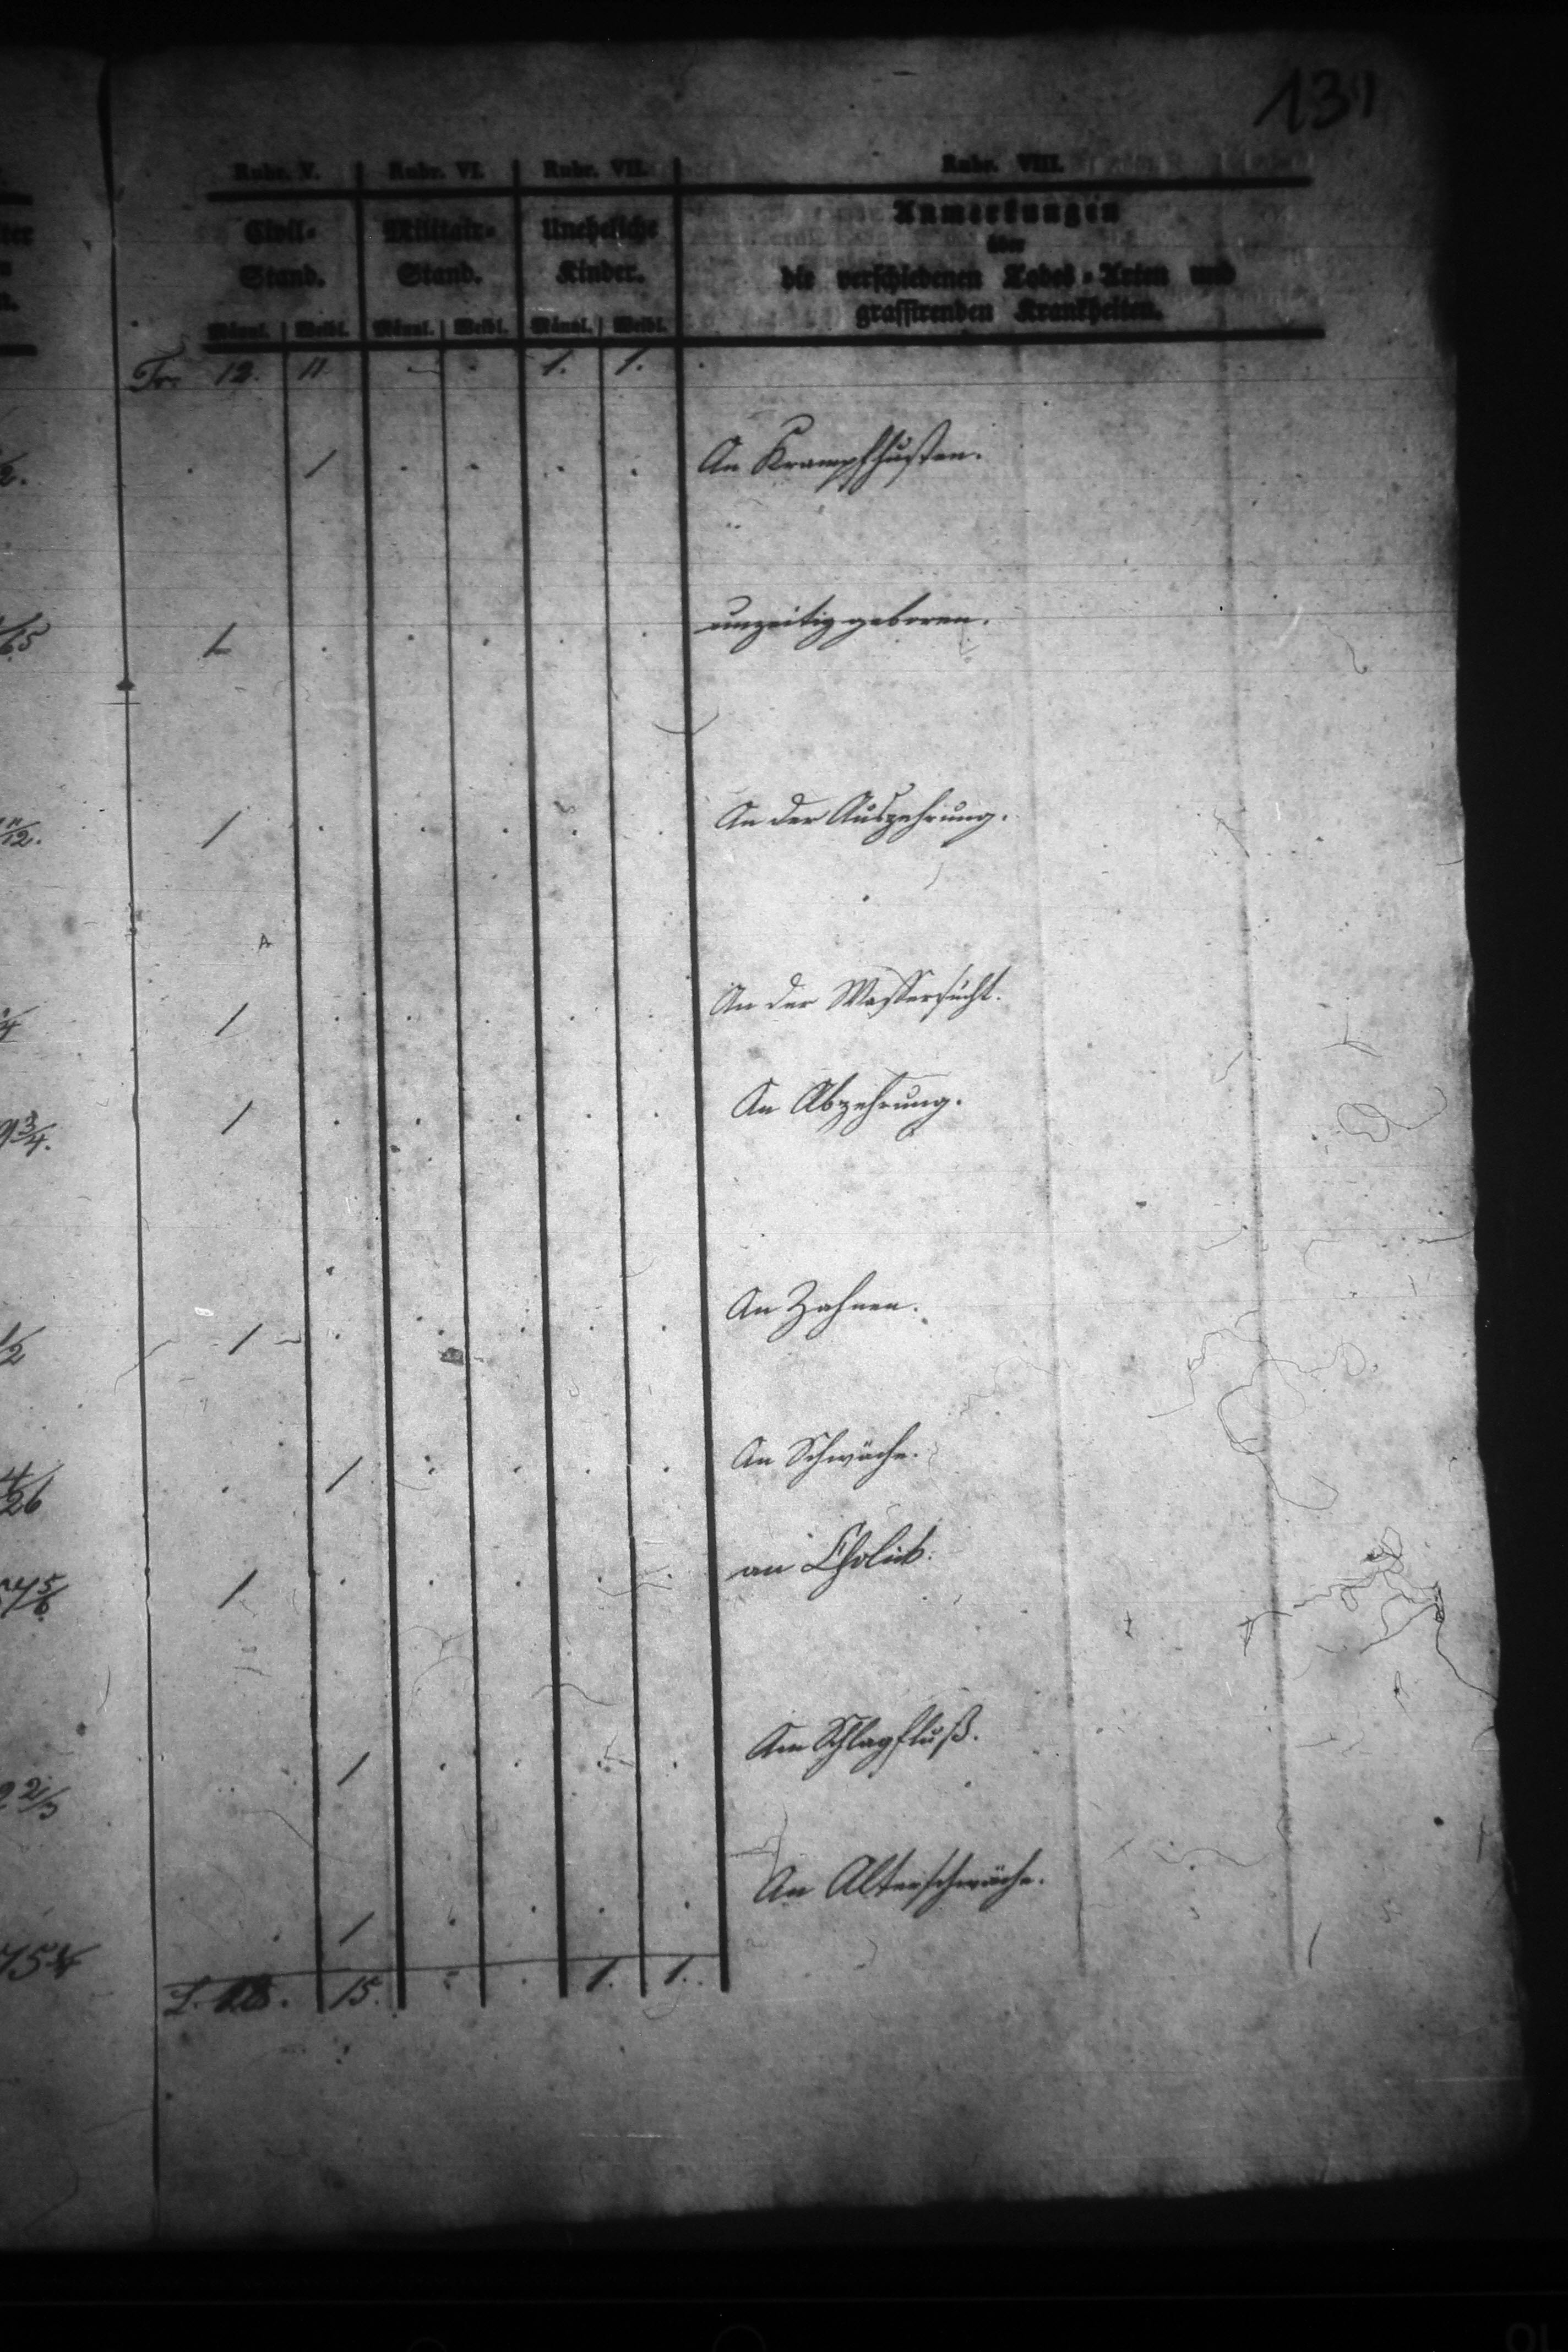 131
Rubr. V. Rubr. VI. Rubr. VII. Rubr. VIII.
Civil- Stand. Militair- Stand. Uneheliche Kinder. Anmerkungen
über
die verschiedenen Todes-Arten und
grassirenden Krankheiten.
Männl. Weibl. Männl. Weibl. Männl. Weibl.
Tr. 12. 11 1. 1.
1 An Krampfhusten.
1 unzeitig geboren.
1 An der Auszehrung.
1 An der Wassersucht.
9 3/4. 1 An Abzehrung.
1/2 1 An Zahnen.
1 An Schwäche.
1 an Cholick.
2/3 1 Am Schlagfluß.
1 An Alterschwäche.
15. 1. 1.